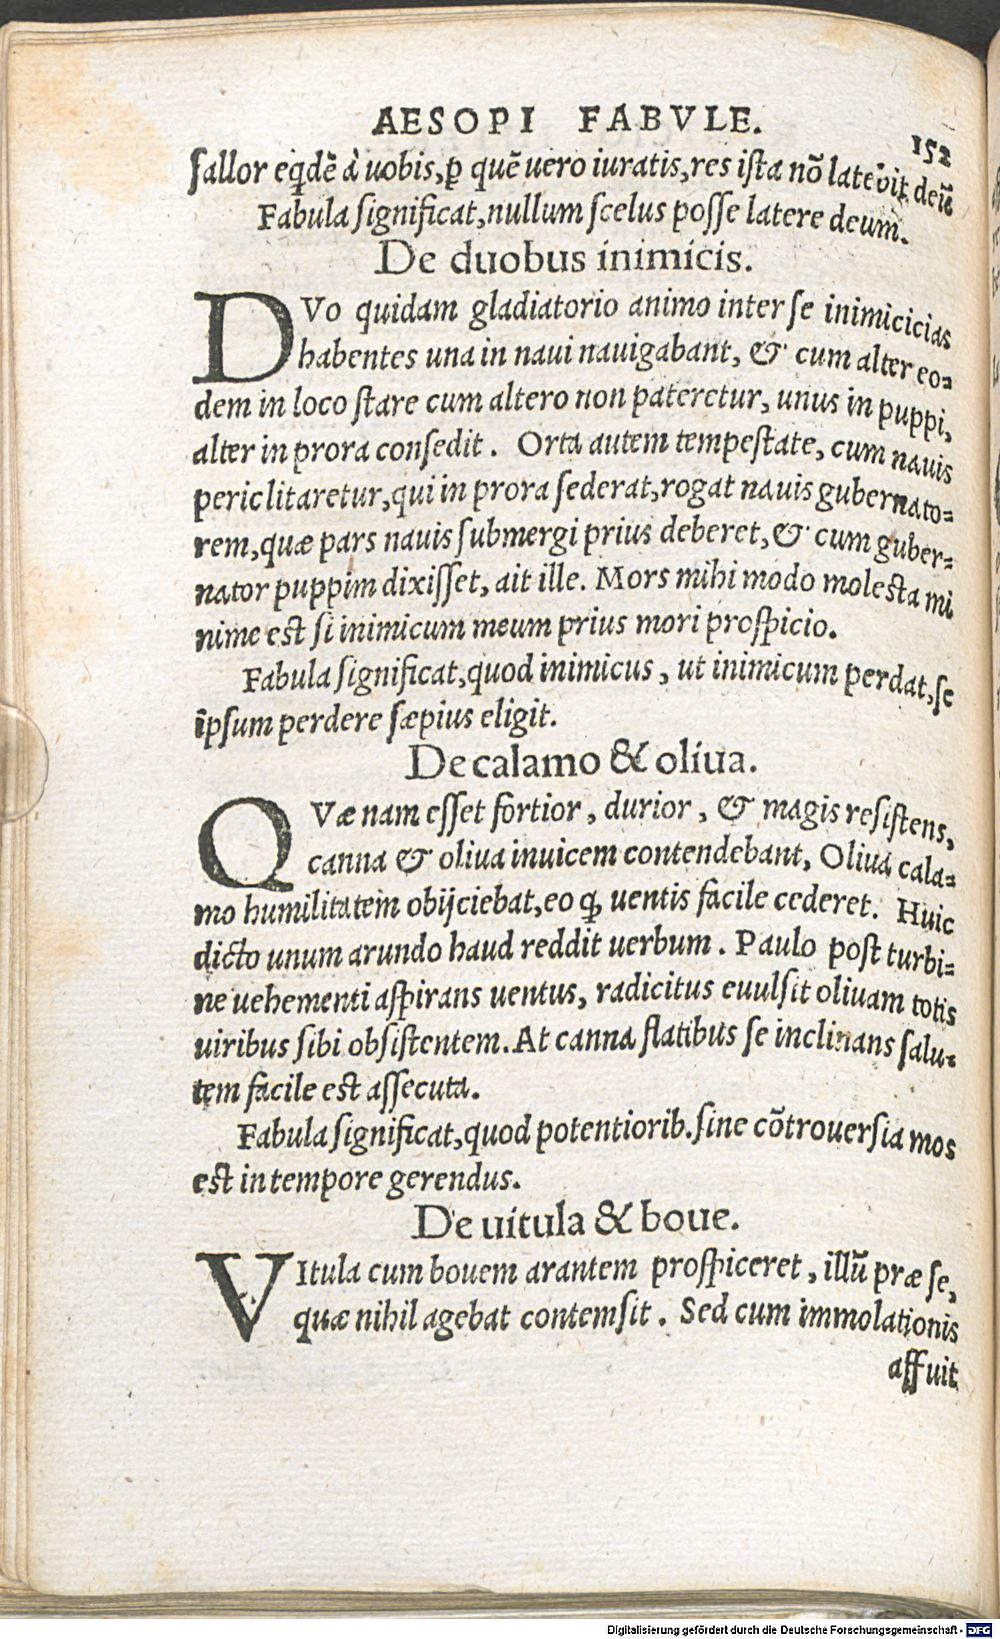 AESOPI FABVLE.
152
sallor eqdē à uobis, ꝑ quē uero iuratis, res ista nō latēbit deū
Fabula significat, nullum scelus posse latere deum.
De duobus inimicis.
DVo quidam gladiatorio animo inter se inimicicias
habentes una in naui nauigabant, & cum alter eo-
dem in loco stare cum altero non pateretur, unus in puppi,
alter in prora consedit. Orta autem tempestate, cum nauis
periclitaretur, qui in prora sederat, rogat nauis gubernato-
rem, quæ pars nauis submergi prius deberet, & cum guber-
nator puppim dixisset, ait ille. Mors mihi modo molesta mi
nime est si inimicum meum prius mori prospicio.
Fabula significat, quod inimicus, ut inimicum perdat, se
ipsum perdere sæpius eligit.
De calamo & oliua.
QVæ nam esset fortior, durior, & magis resistens,
canna & oliua inuicem contendebant, Oliua cala-
mo humilitatem obijciebat, eo ꝙ uentis facile cederet. Huic
dicto unum arundo haud reddit uerbum. Paulo post turbi-
ne uehementi aspirans uentus, radicitus euulsit oliuam totis
uiribus sibi obsistentem. At canna flatibus se inclinans salu-
tem facile est assecuta.
Fabula significat, quod potentiorib. sine cōtrouersia mos
est in tempore gerendus.
De uitula & boue.
VItula cum bouem arantem prospiceret, illū præ se,
quæ nihil agebat contemsit. Sed cum immolationis
affuit
Digitalisierung gefördert durch die Deutsche Forschungsgemeinschaft - DFG